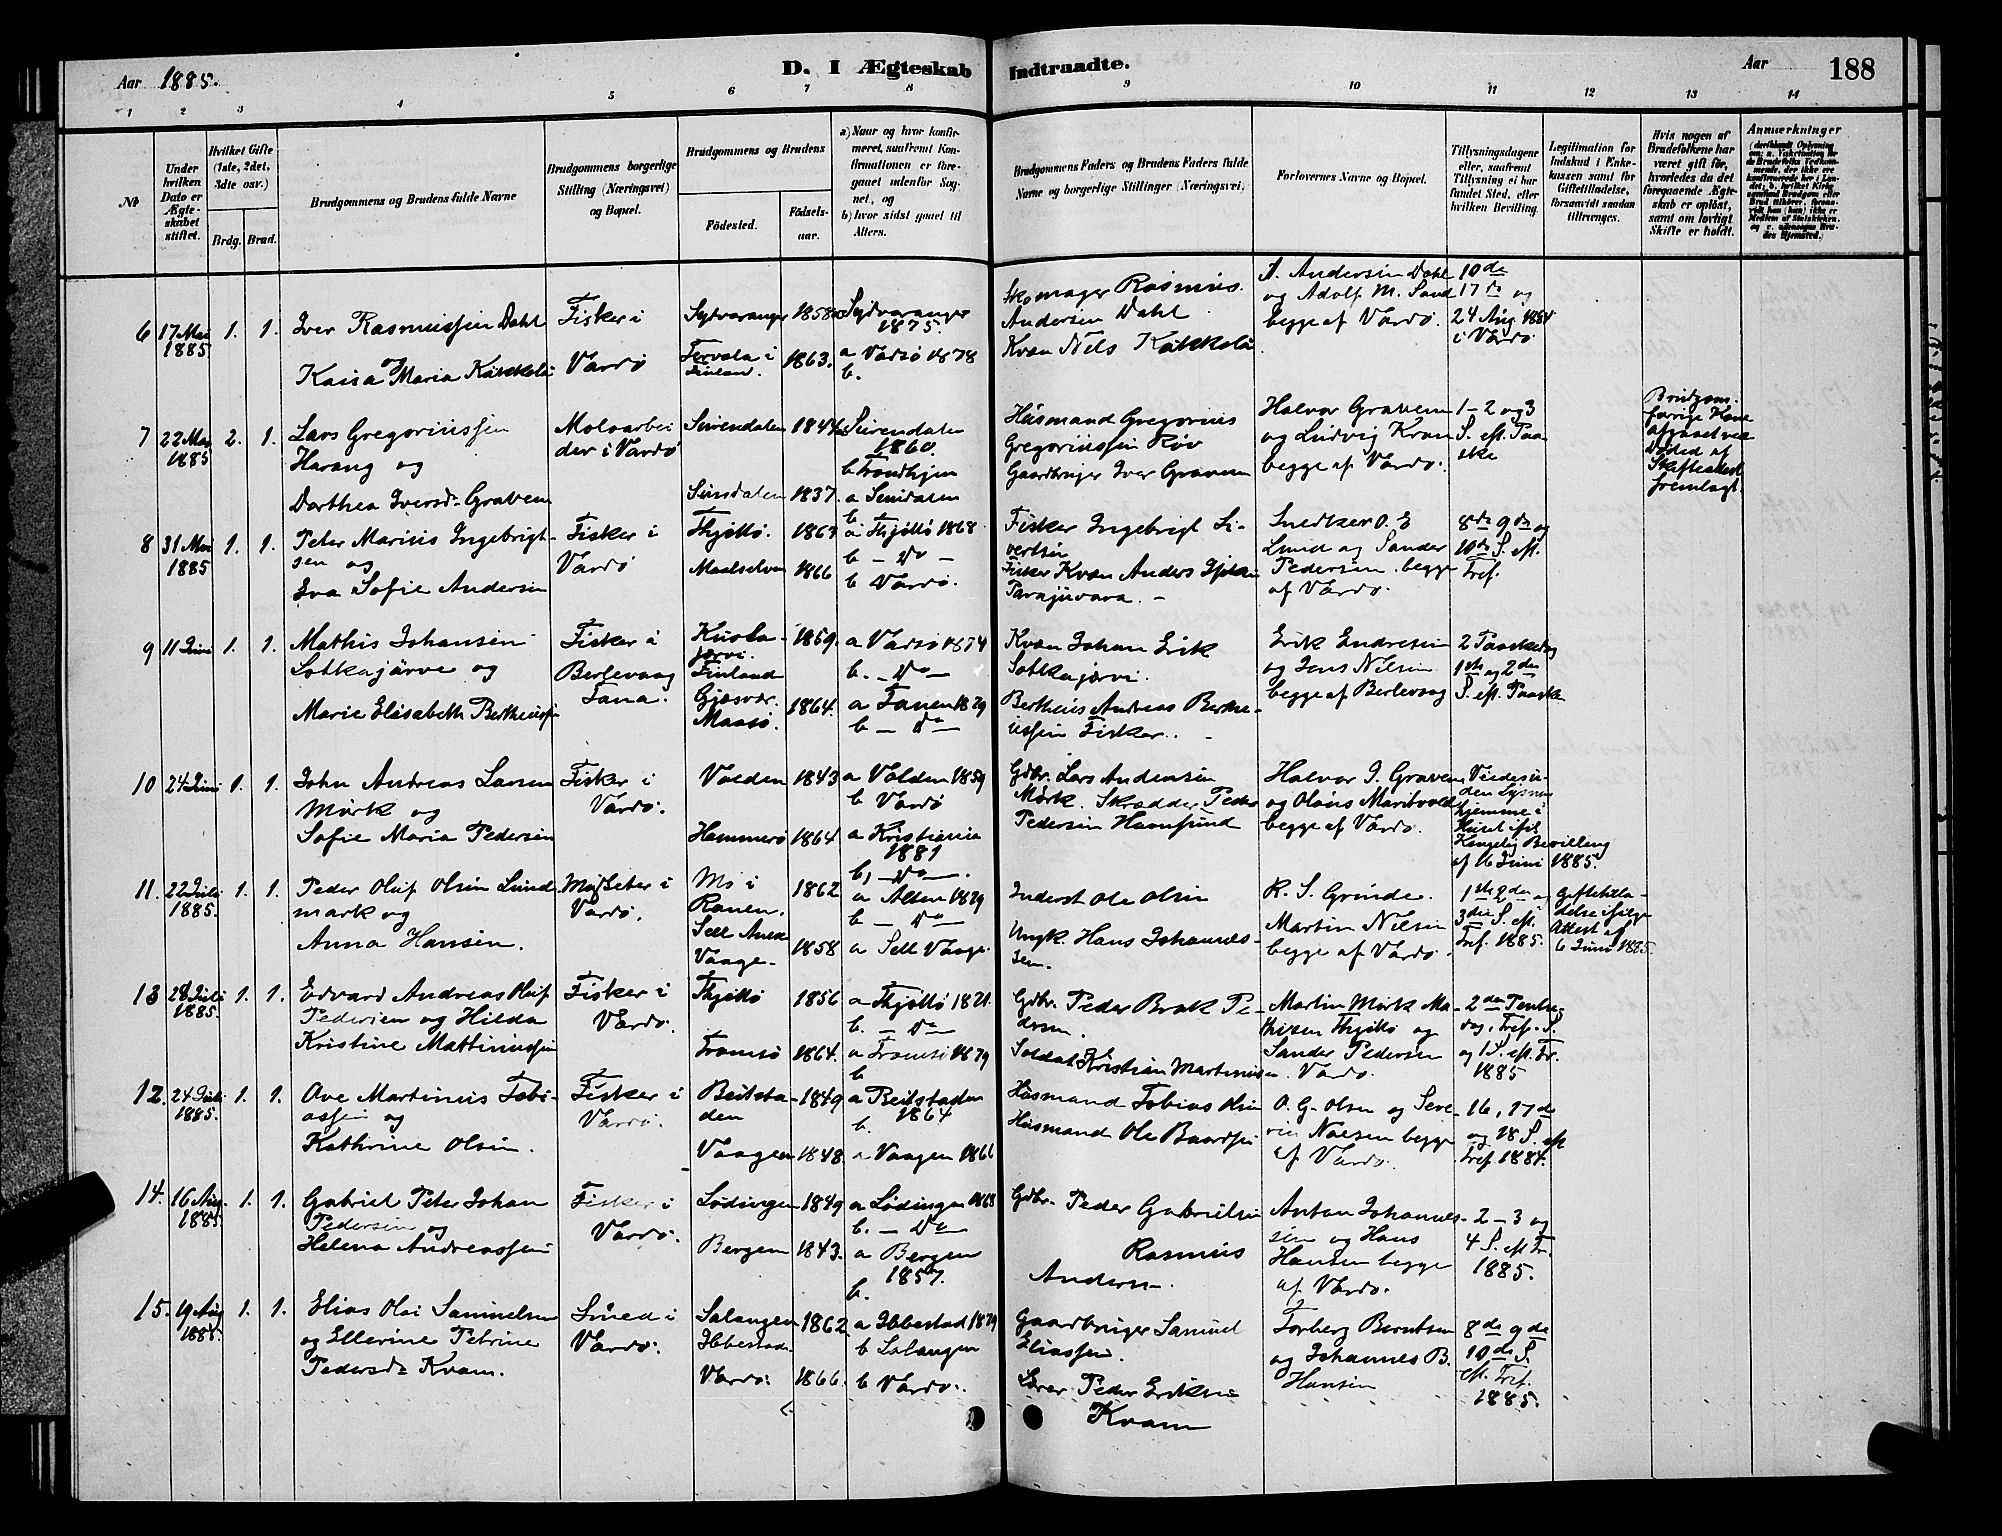 Aar 1885.
D. I Ægteskab Indtraadte.
Aar 188
1 2 3 4 5 6 7 8 9 10 11 12 13 14
No
Under hvilken Dato er Ægteskabet stiftet.
Hvilket Gifte (1ste, 2det, 3die osv.)
Brdg. Brud.
Brudgommens og Brudens fulde Navne
Brudgommens borgerlige Stilling (Næringsvei) og Bopæl.
Brudgommens og Brudens
Födested.
Födselsaar.
a) Naar og hvor konfirmeret, saafremt Konfirmationen er foregaaet udenfor Sognet, og
b) hvor sidst gaaet til Alters.
Brudgommens Faders og Brudens Faders fulde Navne og borgerlige Stillinger (Næringsvei).
Forlovernes Navne og Bopæl.
Tillysningsdagene eller, saafremt Tillysning ei har fundet Sted, efter hvilken Bevilling.
Legitimation for Indskud i Enkekassen samt for Giftetilladelse, forsaavidt saadan tiltrænges.
Hvis nogen af Brudefolkene har været gift før, hvorledes da det foregaaende Ægteskab er opløst, samt om lovligt Skifte er holdt.
Anmærkninger
6 17 Mai 1885 1. 1.
Iver Rasmussen Dahl
og
Kaisa Maria
Fisker i
Vardö
Sydvaranger 1858
Tervola i Finland. 1863.
a Sydvaranger 1875.
a Vadsö 1878
b.
Skomager Rasmus
Andersen Dahl
Kvæn Nils
A. Andersen Dahl
og Adolf M. Sand
begge af Vardö.
10de
17de og
24 Aug 1884
i Vardö
7 22 Mai 1885 2. 1.
Lars Gregoriussen
Harang og
Dorthea Iversd. Graven
Moloarbei
der i Vardö
Surendalen 1844
Surendalen 1837.
a Surendalen
1860.
b Trondhjem
a Surendalen
b
Husmand Gregorius
Gregoriussen Röv
Gaardbruger Iver Graven
Halvor Graven
og Ludvig Kran
begge af Vardö.
1 - 2 og 3
S. eft. Paa
ske
Brudgoms
forrige Kone
afgaaet ved
Döded af
Skifteattest
fremlagt.
8 31 Mai 1885 1. 1.
Peter Marius Ingebrigt-
sen og
Eva Sofie Andersen
Fisker i
Vardö
Thjöttö 1863
Maalselven 1866
a Thjöttö 1868
b - Do -
b Vardö.
Fisker Ingebrigt Si-
vertsen
Fisker Kvæn Anders
Parajuvara. -
Snedker O. E
Lund og Sander
Pedersen begge
af Vardö.
8de 9de og
10de S. eft.
Tref.
9 11 Juni 1. 1.
Mathis Johansen
Sotkajärve og
Marie Elisabeth Bertheussen
Fisker i
Berlevaag
Tana.
Kuola-
järvi.
Finland 1859.
Gjesvær.
Maasö. 1864.
a Vadsö 1874
b. - Do -
a Tanen 1879
b - Do -
Kvæn Johan Erik
Sotkajærvi.
Bertheus Andreas Berthe-
ussen Fisker. -
Erik Endresen
og Jens Nilsen
begge af Berlevaag
2 Paaskedag
1ste og 2den
S. eft. Paaske
10 24 Juni 1. 1.
John Andreas Larsen
Mörk og
Sofie Maria Pedersen
Fisker i
Vardö.
Volden 1843
Hammerö 1864
a Volden 1859
b Vardö
a Kristiania
1881
b, - Do -.
Gdbr. Lars Andersen
Mörk. Skrædder Peder
Pedersen Hamsund
Halvor I. Graven
og Olaus Maritvold
begge af Vardö.
Viede u-
den Lysning
hjemme i
Huset ifl.
Kongelig Bevilling
af 16 Juni 1885.
11. 22 Juli 1885. 1. 1.
Peder Oluf Olsen Lund
mark og
Anna Hansen.
i
Vardö.
Mo i
Ranen. 1862
Vaage. 1858
a Alten 1879
b - Do -
a Sell Vaage.
Inderst Ole Olsen
Ungk. Hans Johannes-
sen.
R. S. Grinde.
Martin Nilsen
begge af Vardö.
1ste 2den og
3die S. eft.
Tref. 1885.
Giftetilla-
delse ifölge
Attest af
6 Juni 1885.
13 28 Juli 1885. 1. 1.
Edvard Andreas Oluf
Pedersen og Hilda
Kristine Mattinussen
Fisker i
Vardö.
Thjöttö 1856
Tromsö 1864.
a Thjöttö 1871.
b. - Do -
a Tromsö 1879
b
Gdbr. Peder Brok Pe-
dersen.
Soldat Kristian Martinussen
Martin Mörk Ma-
thisen Thjöttö og
Sander Pedersen
Vardö.
2den Pintse
dag, Tref. S.
og 1 S. eft. Tr.
1885
12. 24 Juli 1885. 1. 1.
Ove Martinus Tobi-
assen og
Kathrine Olsen.
Fisker i
Vardö.
Beitsta-
den 1849
Vaagen 1848.
a Beitstaden
1864
b.
a Vaagen 1866
Husmand Tobias Olsen
Husmand Ole Baardsen
O. G. Olsen og Seve-
rin Nolsen begge
af Vardö.
16, 17de
og 18 S. eft
Tref. 1884.
14. 16 Aug 1885. 1. 1.
Gabriel Peter Johan
Pedersen og
Helena Andreassen
Fisker i
Vardö.
Lödingen 1849
Bergen 1843.
a Lödingen 1868
b. - Do -
a Bergen
1857.
b.
Gdbr. Peder Gabrielsen
Rasmus
Anders-.
Anton Johannes-
sen og Hans
Hansen begge
af Vardö.
2 - 3 og
4 S. eft Tr.
1885.
15. 19 Aug 1885. 1. 1.
Elias Olai Samuelsen
og Ellerine Petrine
Pedersdr Kvam.
Smed i
Vardö.
Salangen
Ibbestad. 1862.
Vardö. 1866.
a Ibbestad 1879
b Salangen
b Vardö.
Gaardbruger Samuel
Eliassen.
Lærer Peder Eriksen
Kvam
Torberg Berntsen
og Johannes B.
Hansen
8de 9de
10de S.
eft. Tref.
1885.